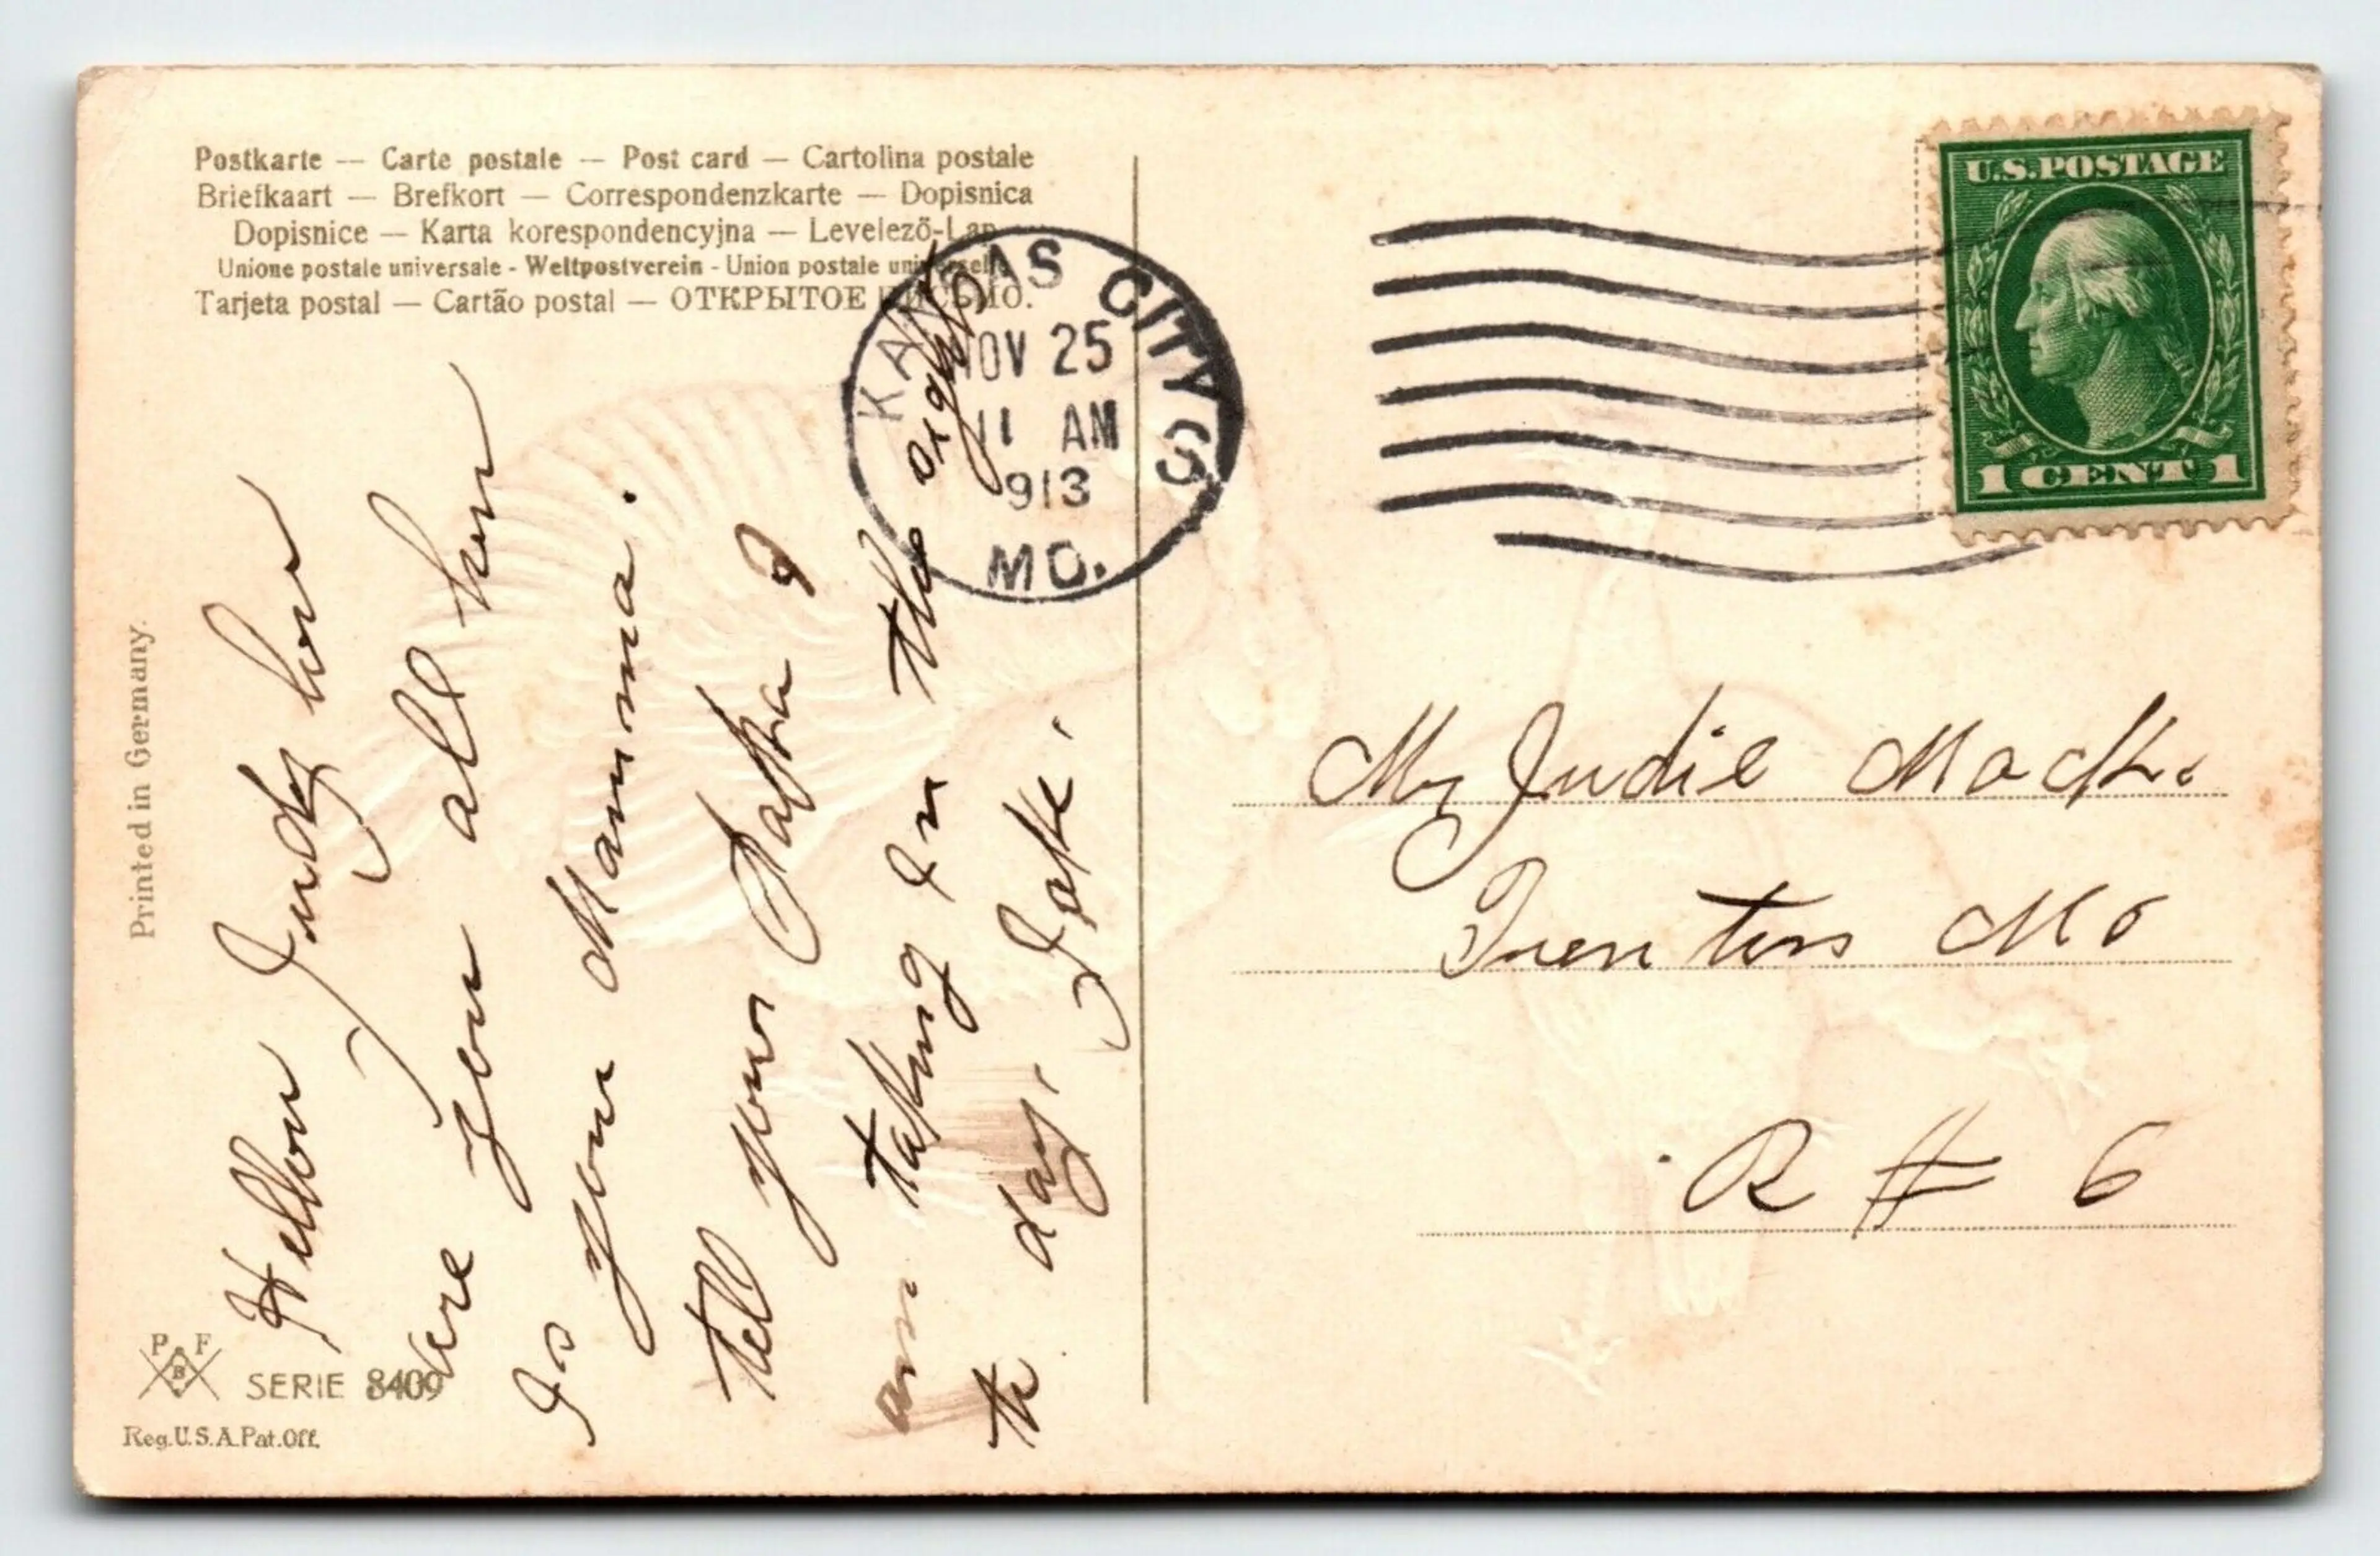 Postkarte — Carte postale — Post card — Cartolina postale
Briefkaart — Brefkort — Correspondenzkarte — Dopisnica
Dopisnice — Karta korespondencyjna — Levelező-Lap
Unione postale universale - Weltpostverein - Union postale universelle
Tarjeta postal — Cartão postal — ОТКРЫТОЕ ПИСЬМО.
KANSAS CITY S
NOV 25
11 AM
1913
MO.
U.S. POSTAGE
1 CENT 1
Hellow Judy how
are you all how
Is your Mamma.
tell your Papa I
am taking In the sights
to day. Jake.
Mr Judie Mack.
Trenton Mo
R # 6
Printed in Germany.
P F
B
SERIE 8409
Reg. U.S.A. Pat. Off.